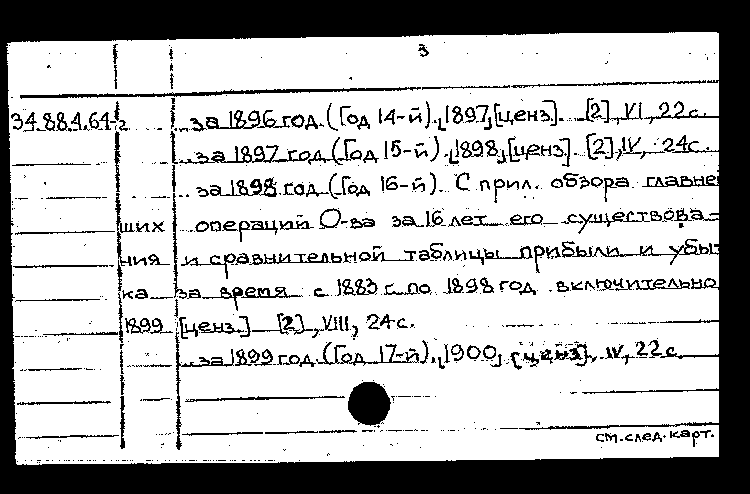 3
34.88.4.64-2 ..за 1896 год. (Год 14-й). [1897] [ценз]. [2], VI, 22 с.
..за 1897 год (Год 15-й). [1898] [ценз]. [2], IV, 24 с.
..за 1898 год (Год 16-й). С прил. обзора главней
ших операций О-ва за 16 лет его существова-
ния и сравнительной таблицы прибыли и убы-
ка за время с 1883 г. по 1898 год включительно
1899 [ценз.] [2], VIII, 24 с.
..за 1899 год. (Год 17-й). [1900] [ценз], IV, 22 с.
см. след. карт.